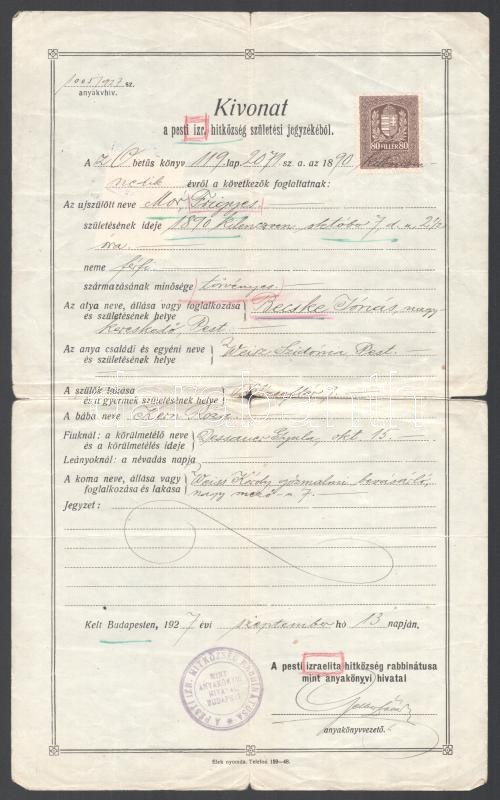 1005/927 sz.
anyakvhiv.
Kivonat
a pesti izr. hitközség születési jegyzékéből.
80 FILLÉR 80
A betűs könyv 119 lap. 2071 sz. a. az 1890
évről a következők foglaltatnak:
Az ujszülött neve Mór,
születésének ideje 1890 kilencven október 7 d. u. 2
óra.
neme férfi
származásának minősége törvényes.
Az atya neve, állása vagy foglalkozása és születésének helye Becske Jónás, nagy
kereskedő, Pest.
Az anya családi és egyéni neve és születésének helye Weisz Szidónia Pest.
A szülők lakása és a gyermek születésének helye
A bába neve Kern Róza
Fiuknál: a körülmetélő neve és a körülmetélés ideje Dessauer Gyula, okt. 15.
Leányoknál: a névadás napja
A koma neve, állása vagy foglalkozása és lakása Weiss gőzmalmi bevásárló,
nagy mező u 7.
Jegyzet:
Kelt Budapesten, 1927 évi szeptember hó 13 napján.
A pesti izraelita hitközség rabbinátusa
mint anyakönyvi hivatal
A PESTI IZR. HITKÖZSÉG RABBINÁTUSA
MINT
ANYAKÖNYVI
HIVATAL
BUDAPEST
anyakönyvvezető.
Elek nyomda. Telefon 159—48.